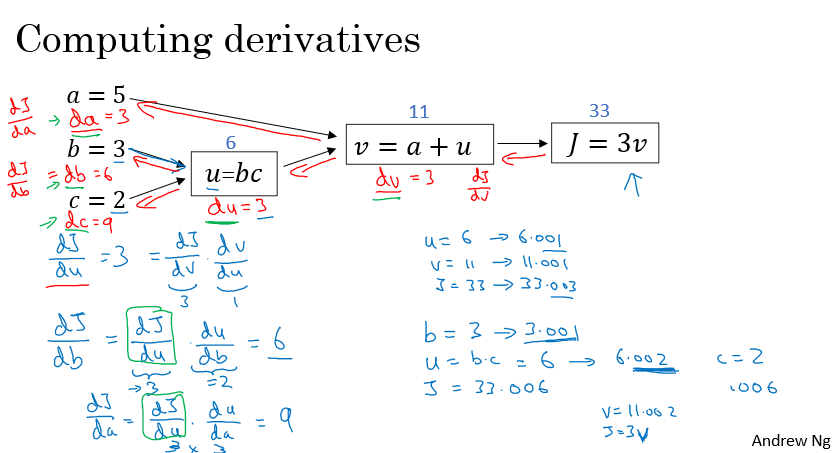 Computing derivatives
a = 5
dJ/da → da = 3
b = 3
dJ/db = db = 6
→
c = 2
→ dc = 9
6
u=bc
du = 3
11
v = a + u
dv = 3 dJ/dv
33
J = 3v
dJ/du = 3 = dJ/dv · dv/du
3 1
dJ/db = dJ/du · du/db = 6
→3 =2
dJ/da = dJ/du · du/da = 9
3 × 3
u = 6 → 6.001
v = 11 → 11.001
J = 33 → 33.003
b = 3 → 3.001
u = b·c = 6 → 6.002 c = 2
J = 33.006 .006
v = 11.002
J = 3v
Andrew Ng